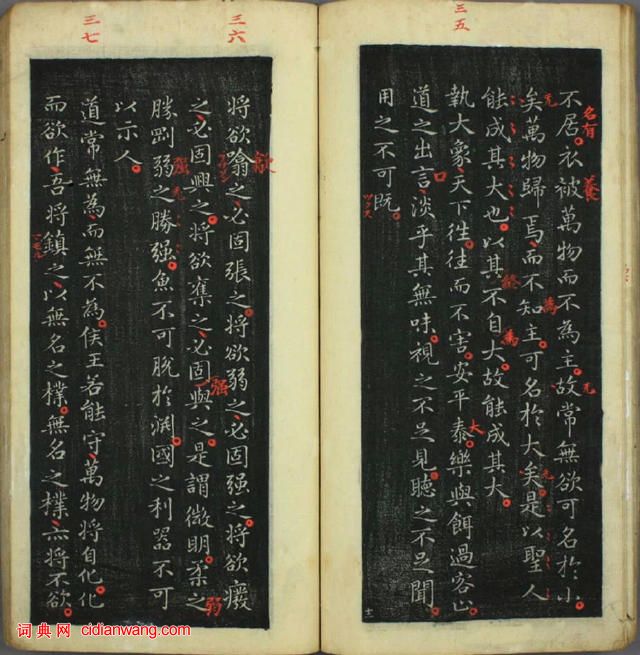 三五
不居衣被萬物而不為主故常無欲可名於小
名有
養
矣萬物歸焉而不知主可名於大矣是以聖人
為
能成其大也以其不自大故能成其大
終
為
執大象天下往往而不害安平泰樂與餌過客止
大
道之出言淡乎其無味視之不足見聽之不足聞
口
用之不可既
ツクス
十二
三六
將欲噏之必固張之將欲弱之必固强之將欲癈
歙
之必固興之將欲奪之必固與之是謂微明柔之
强
弱
勝剛弱之勝强魚不可脫於淵國之利器不可
强
以示人
三七
道常無為而無不為侯王若能守萬物將自化化
而欲作吾將鎮之以無名之樸無名之樸亦將不欲
词典网 cidianwang.com